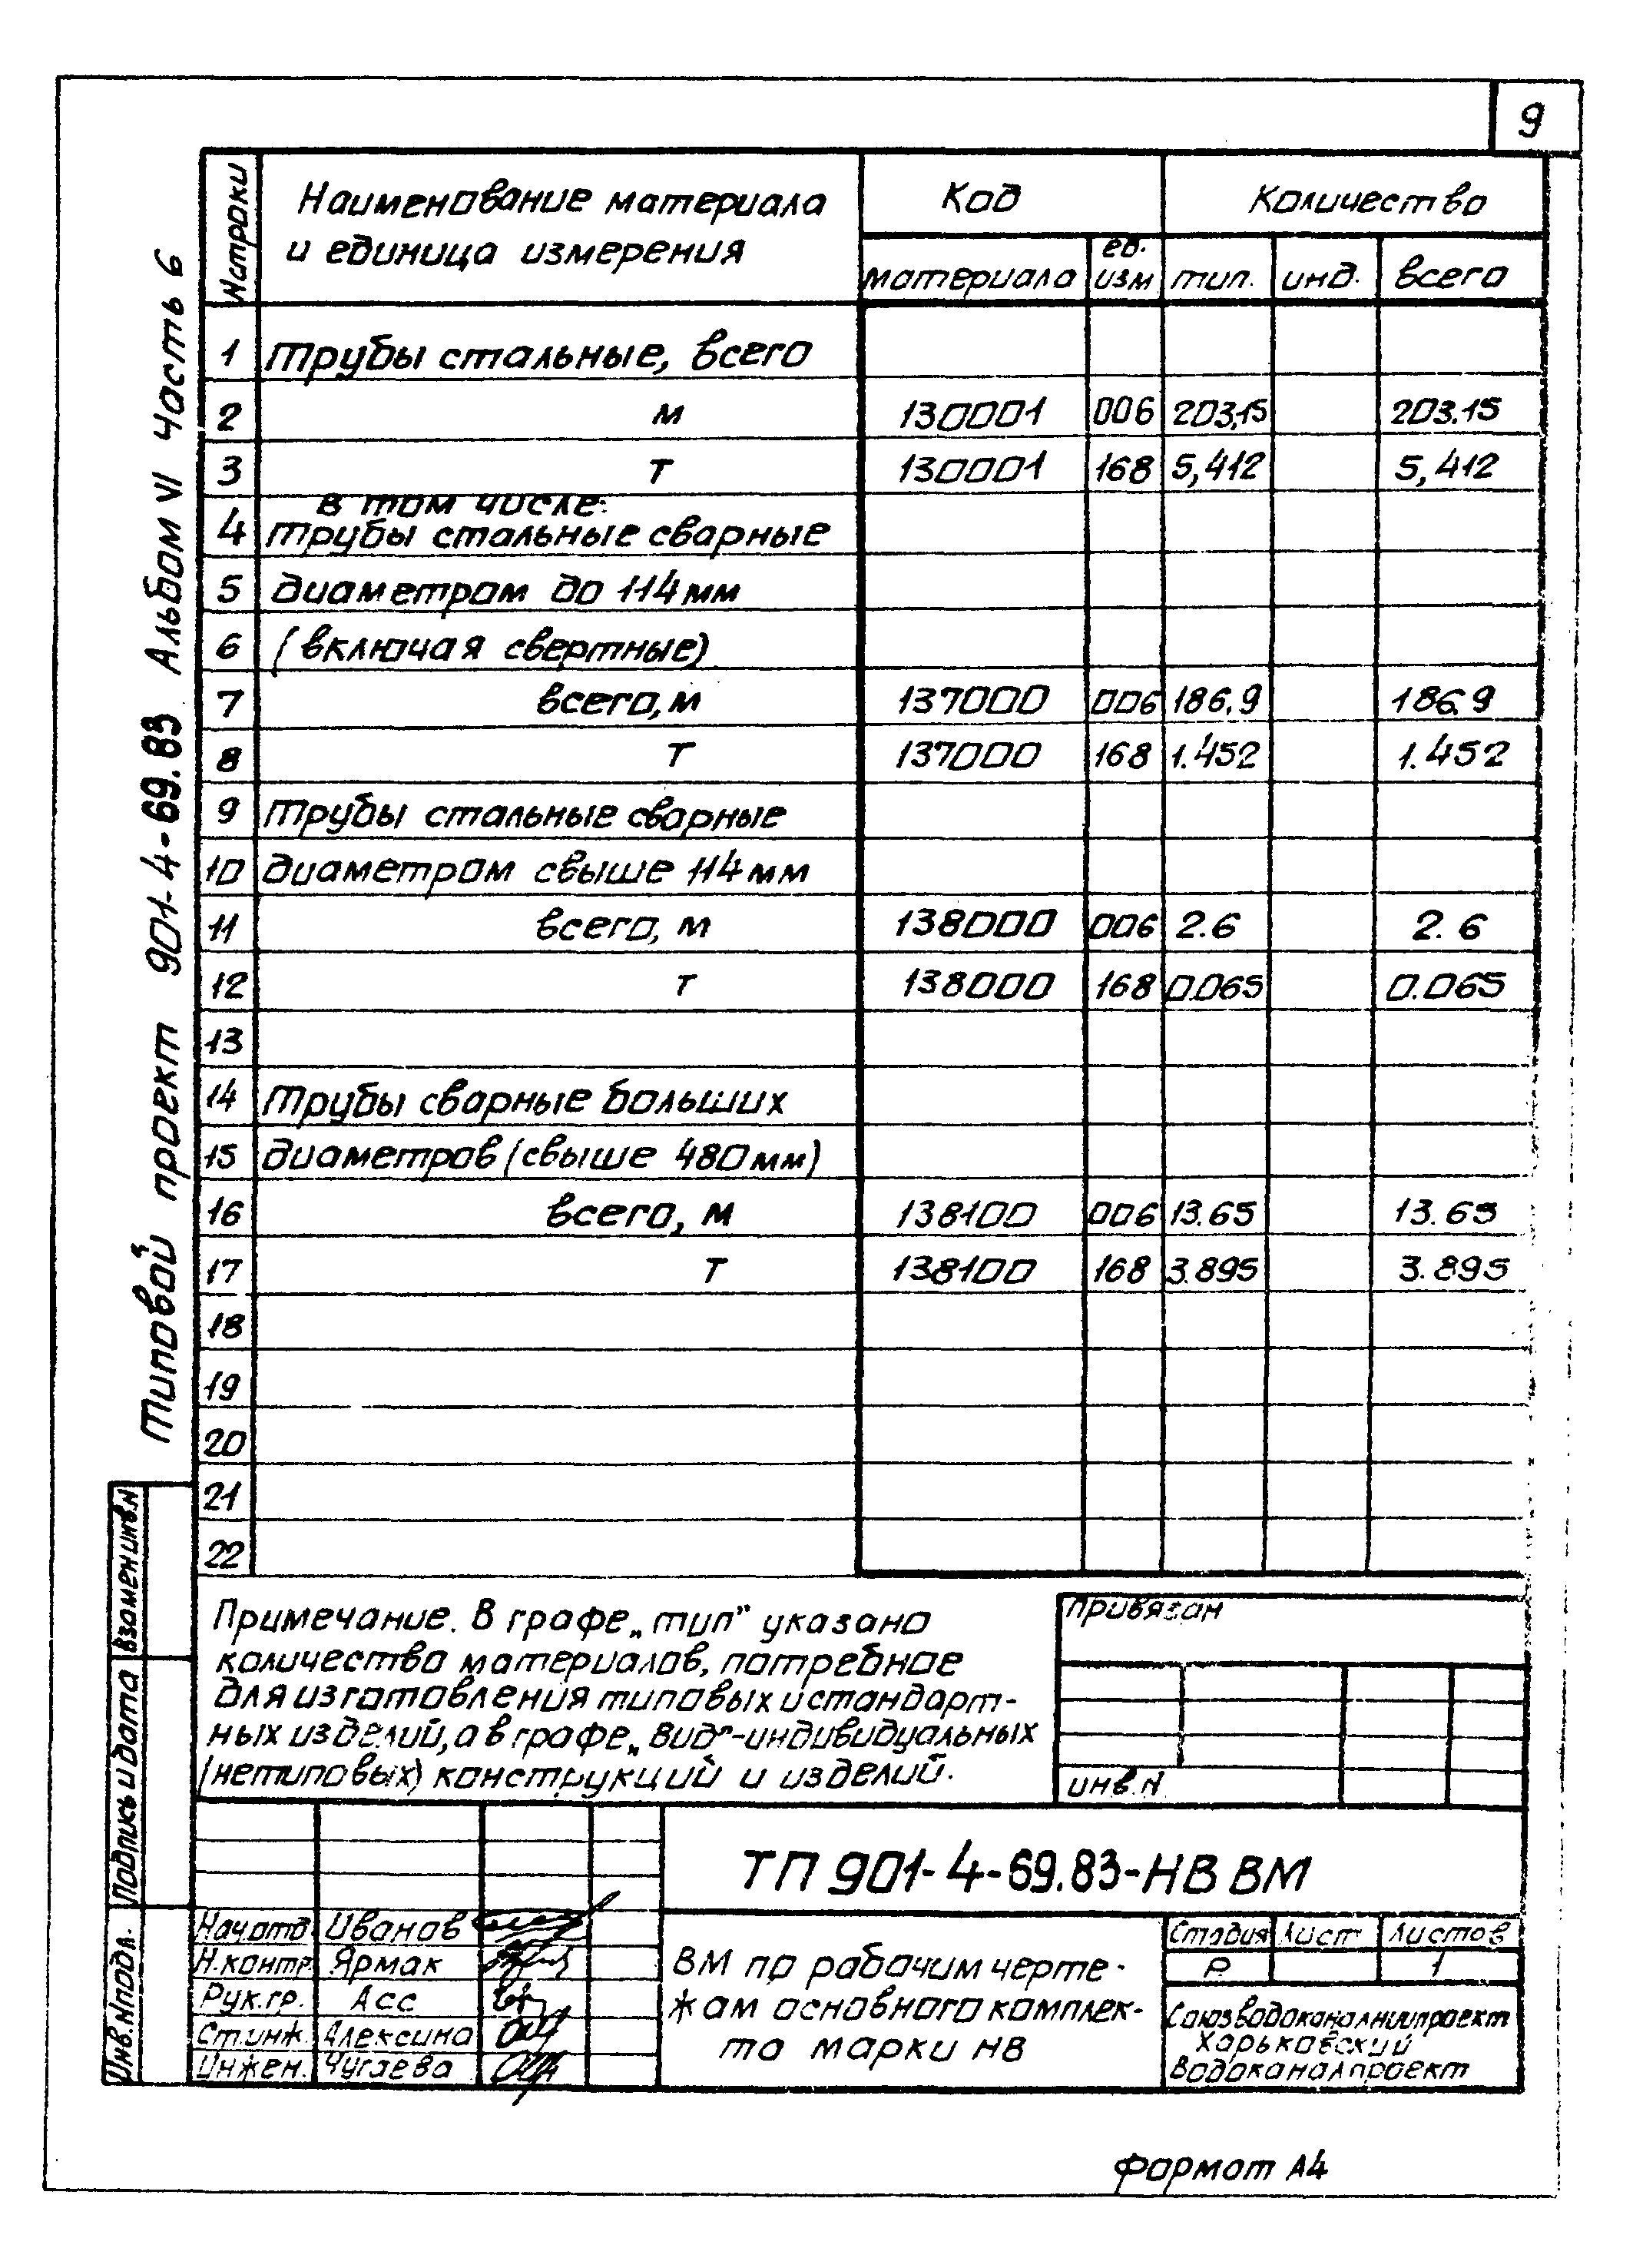 9
Типовой проект 901-4-69.83 Альбом VI Часть 6
N строки
Наименование материала
и единица измерения
Код
Количество
материала
ед.
изм
тип.
инд.
всего
1 Трубы стальные, всего
2 м 130001 006 203,15 203.15
3 т 130001 168 5,412 5,412
в том числе:
4 Трубы стальные сварные
5 диаметром до 114 мм
6 (включая свертные)
7 всего, м 137000 006 186,9 186.9
8 т 137000 168 1.452 1.452
9 Трубы стальные сварные
10 диаметром свыше 114 мм
11 всего, м 138000 006 2.6 2.6
12 т 138000 168 0.065 0.065
13
14 Трубы сварные больших
15 диаметров (свыше 480 мм)
16 всего, м 138100 006 13.65 13.65
17 т 138100 168 3.895 3.895
18
19
20
21
22
Примечание. В графе „тип" указано
количество материалов, потребное
для изготовления типовых и стандарт-
ных изделий, а в графе „вид"-индивидуальных
(нетиповых) конструкций и изделий.
Привязан
инв. N
Взамен инв. N
Подпись и дата
Инв. N подл.
ТП 901-4-69.83-НВ ВМ
Нач.отд. Иванов
Н.контр. Ярмак
Рук.гр. Асс
Ст.инж. Алексина
Инжен. Чугаева
ВМ по рабочим черте-
жам основного комплек-
та марки НВ
Стадия Лист Листов
Р 1
Союзводоканалниипроект
Харьковский
Водоканалпроект
Формат А4